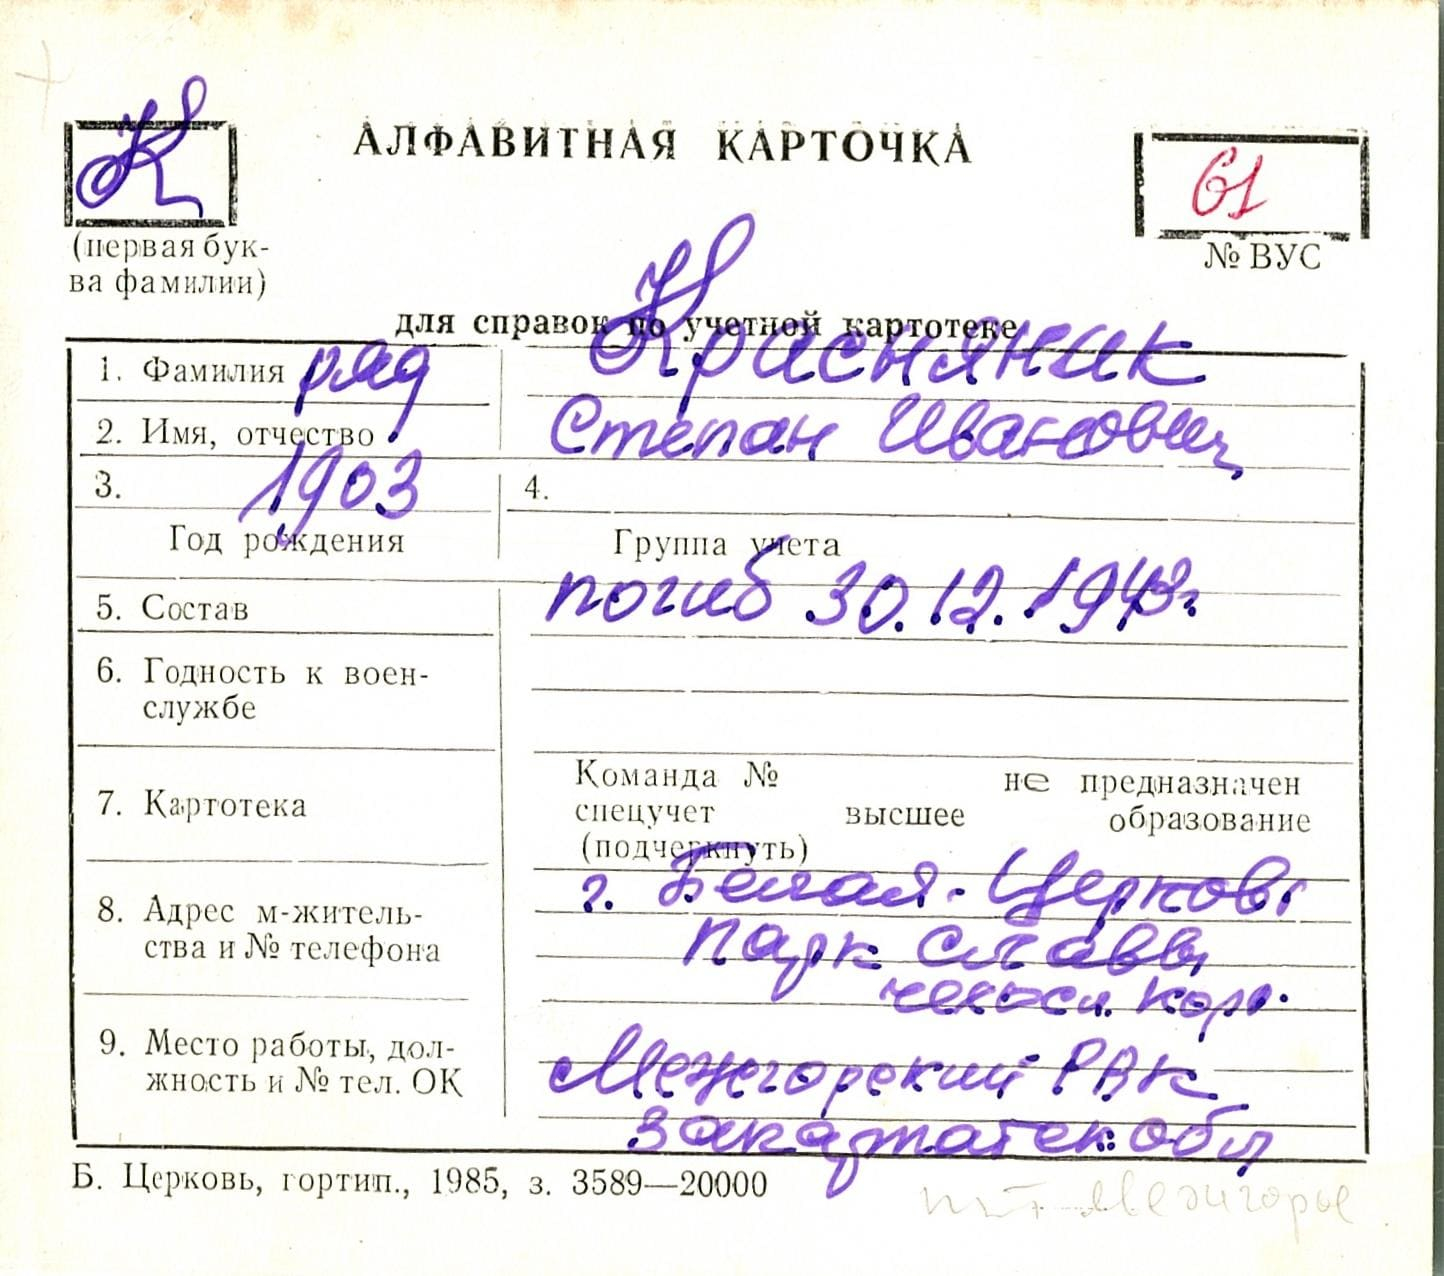 К
АЛФАВИТНАЯ КАРТОЧКА
61
(первая бук-
ва фамилии)
№ ВУС
для справок по учетной картотеке
1. Фамилия ряд Красняник
2. Имя, отчество Степан Иванович
3. 1903 4.
Год рождения Группа учета
5. Состав погиб 30.12.1943г
6. Годность к воен-
службе
7. Картотека
Команда № не предназначен
спецучет высшее образование
(подчеркнуть)
8. Адрес м-житель-
ства и № телефона
г. Белая-Церковь
парк славы
чехосл. кор.
9. Место работы, дол-
жность и № тел. ОК
Межгорский РВК
Закарпатск обл
Б. Церковь, гортип., 1985, з. 3589—20000
пгт Межигорье